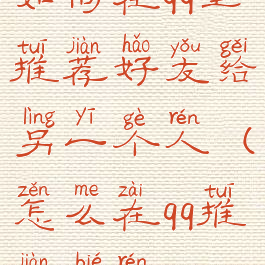 如何在qq里
tuī jiàn hǎo yǒu gěi
推荐好友给
lìng yī gè rén
另一个人（
zěn me zài tuī
怎么在qq推
jiàn bié rén